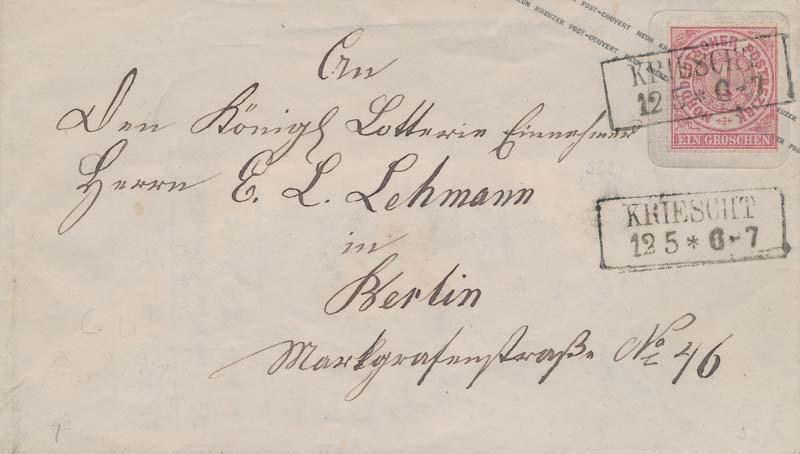 NEUN KREUZER POST-COUVERT NEUN KREUZER
NORDDEUTSCHER POSTBEZIRK
1
EIN GROSCHEN
KRIESCHT
12 5 * 6-7
POST-COUVERT NEUN KREUZER
An
Den Königl Lotterie Einnehmer
Herrn E. L. Lehmann
in
Berlin
Markgrafenstraße No 46
KRIESCHT
12 5 * 6-7